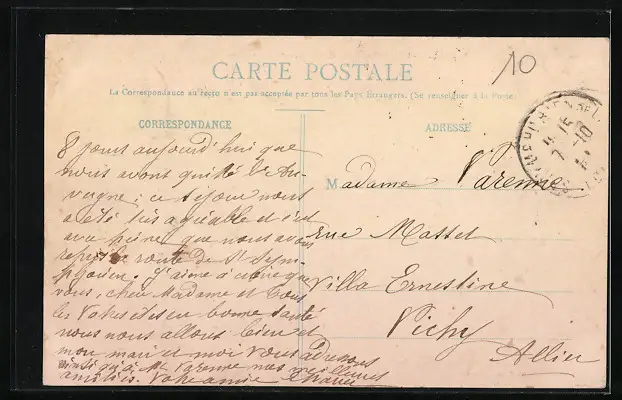 10
CARTE POSTALE
La Correspondance au recto n'est pas acceptée par tous les Pays Etrangers. (Se renseigner à la Poste)
CORRESPONDANCE
8 jours aujourd'hui que
nous avons quitté l'Au-
vergne; ce séjour nous
a été très agréable et c'est
avec peine que nous avons
repris la route de St Sym-
phorien. J'aime à croire que
vous, chère Madame et tous
les vôtres êtes en bonne santé
nous nous allons bien et
mon mari et moi vous adressons
ainsi qu'à Mr Varenne nos meilleures
amitiés. Votre amie
ADRESSE
Madame Varenne
rue Masset
Villa Ernestine
Vichy
Allier